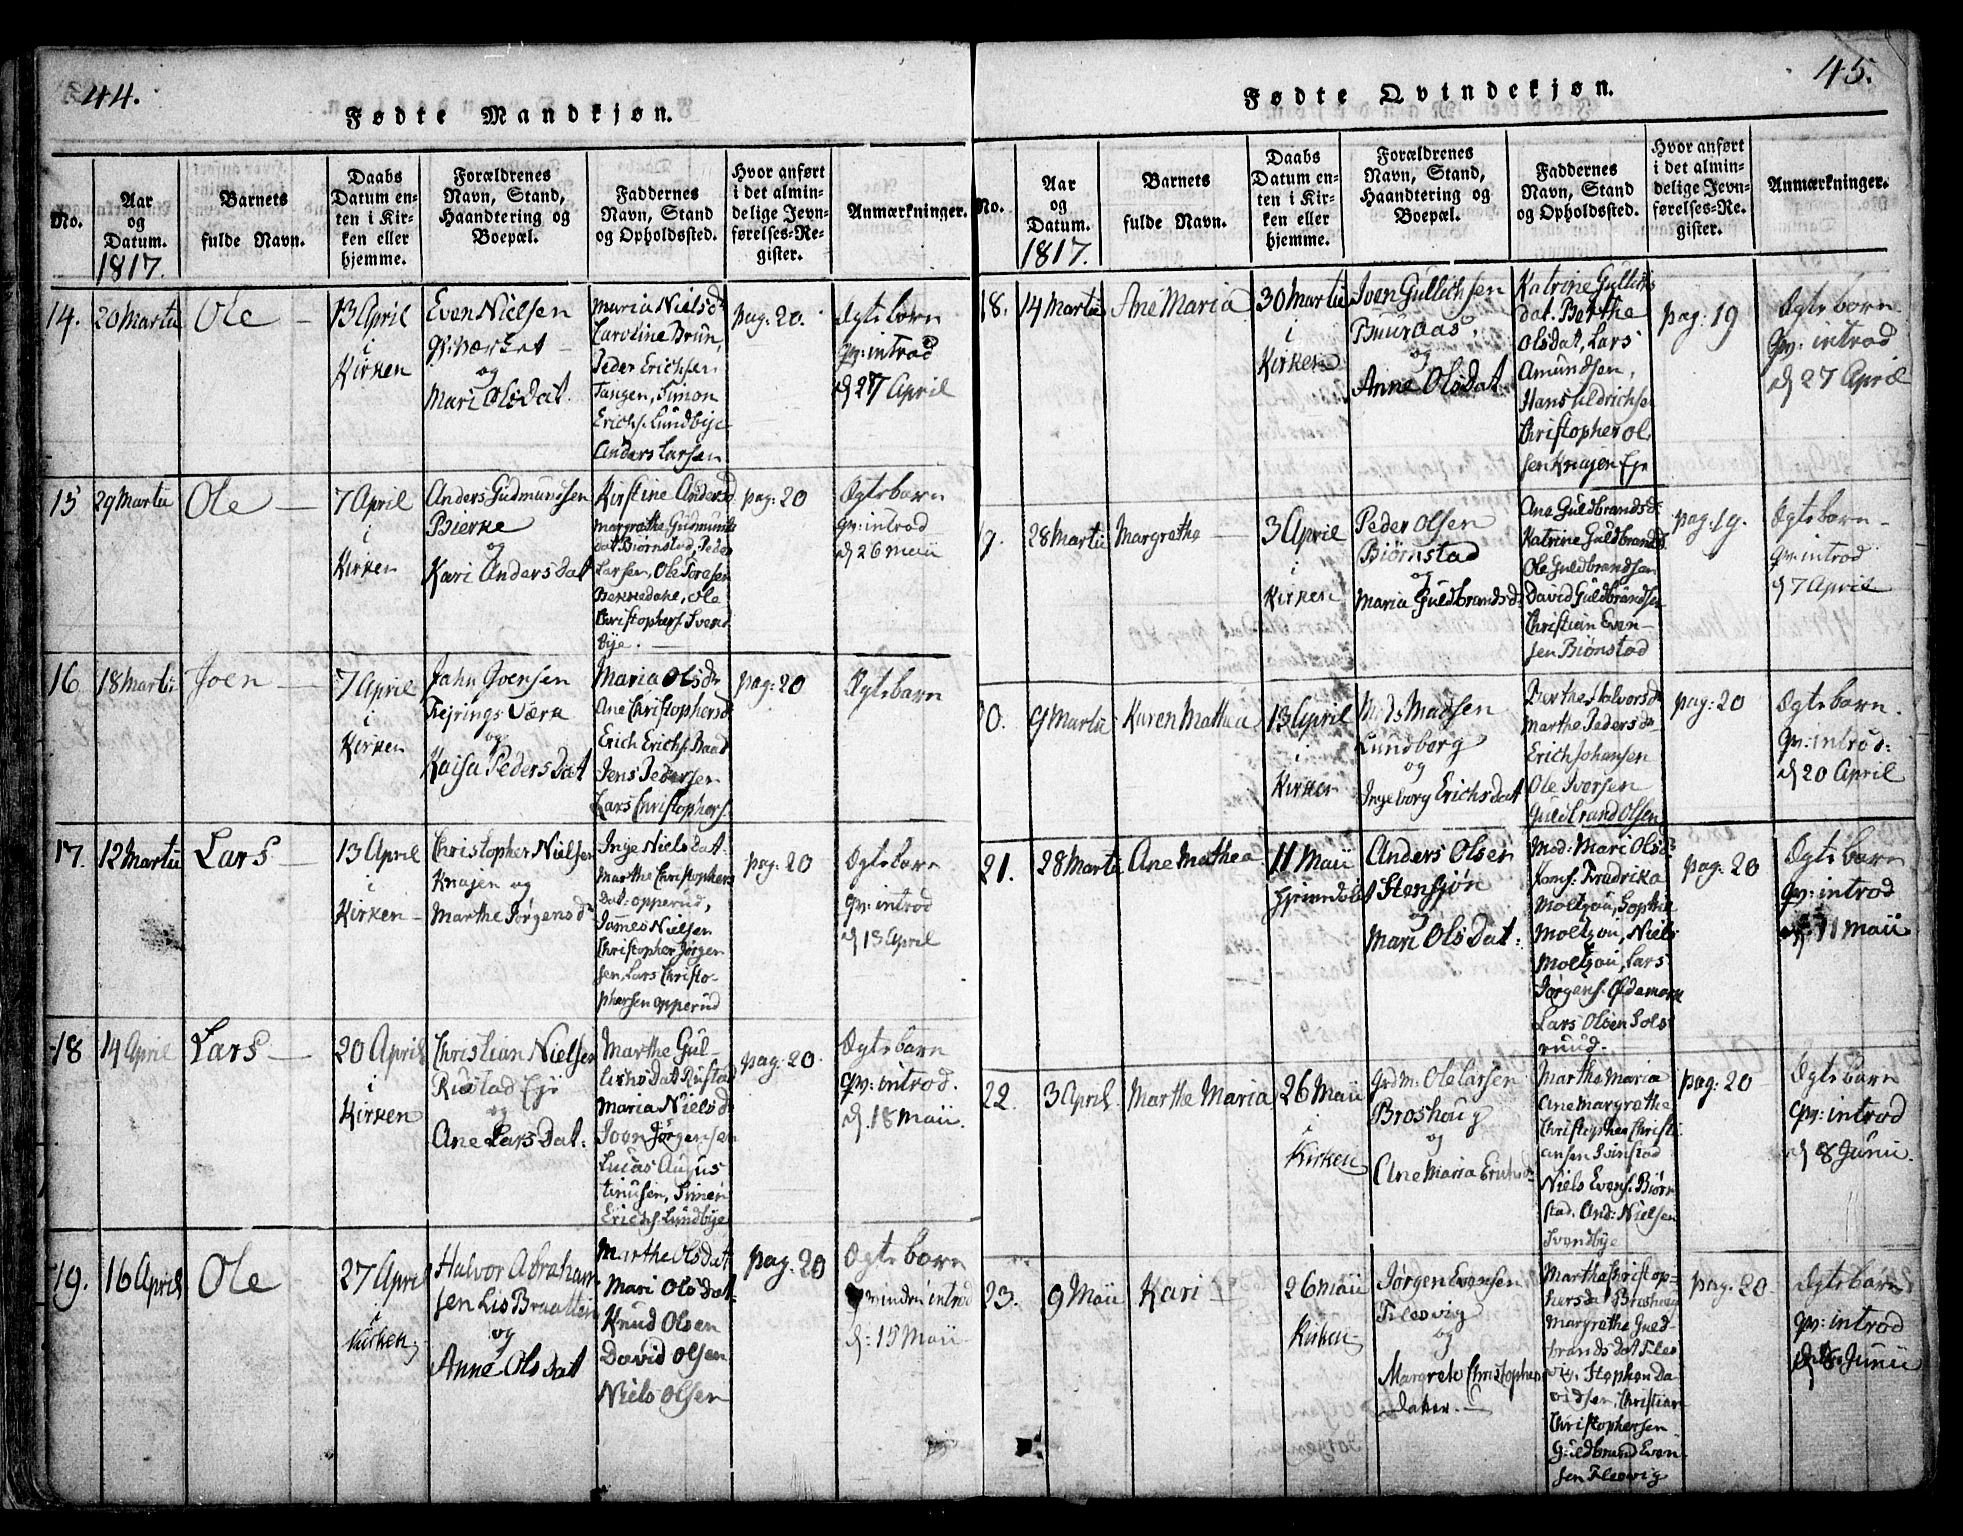 44.
Fødte Mandkjøn.
No.
Aar
og
Datum.
1817.
Barnets
fulde Navn.
Daabs
Datum en-
ten i Kir-
ken eller
hjemme.
Forældrenes
Navn, Stand,
Haandtering og
Boepæl.
Faddernes
Navn, Stand
og Opholdssted.
Hvor anført
i det almin-
delige Jevn-
førelses-Re-
gister.
Anmærkninger.
14.
20 Martii
Ole
13 April
i
Kirken
Even Nielsen
og
Mari Olsdat.
Maria Nielsd
Caroline Brun,
Peder Erichsen
Tangen, Simon
Erichs. Lundbye
Anders Larsen
pag: 20.
Ægtebarn
qv: introd
d 27 April
15
29 Martii
Ole
7 April
i
Kirken
Anders Gudmundsen
Bierke
og
Kari Andersdat
Kirstine Andersd
Margrethe Gudmunds
dat Biørnstad, Peder
Larsen, Ole Toresen
Bekkedahl, Ole
Christophers. Svend
bye.
pag: 20
Ægtebarn
qv: introd
d 26 Maii
16
18 Martii
Joen
7 April
i
Kirken
Jahn Joensen
Fejrings Værk
og
Kaisa Pedersdat
Maria Olsd
Ane Christophersd
Erich Erichs. Baad
Jens Pedersen
Lars Christophers.
pag: 20
Ægtebarn
17.
12 Martii
Lars
13 April
i
Kirken
Christopher Nielsen
Knajen og
Marthe Jørgensd
Inge Nielsdat.
Marthe Christophers
dat: Opperud,
James Nielsen
Christopher Jørgen
sen, Lars Christo-
phersen Opperud
pag: 20
Ægtebarn
qv: introd
d 13 April
18
14 April
Lars
20 April
i
Kirken
Christian Nielsen
Rustad Eje
og
Ane Larsdat.
Marthe Gul-
lichsdat Rustad
Maria Nielsd
Joen Jørgensen
Lucas Augus
tinusen, Simen
Erichs. Lundbye
pag: 20.
Ægtebarn
qv: introd.
d. 18 Maii.
19.
16 April
Ole
27 April
i
Kirken
Halvor Abraham
sen Lis Braatten
og
Anne Olsdat
Marthe Olsdat
Mari Olsdat.
Knud Olsen
David Olsen
Niels Olsen
pag: 20
Ægtebarn
qvinden introd
d: 15 Maii
45.
Fødte Qvindekjøn.
No.
Aar
og
Datum.
1817.
Barnets
fulde Navn.
Daabs
Datum en-
ten i Kir-
ken eller
hjemme.
Forældrenes
Navn, Stand,
Haandtering og
Boepæl.
Faddernes
Navn, Stand
og Opholdssted.
Hvor anført
i det almin-
delige Jevn-
førelses-Re-
gister.
Anmærkninger.
18.
14 Martii
Ane Maria
30 Martii
i
Kirken
Iven Gullichsen
Buuraas,
og
Anne Olsdat
Katrine Gullichs
dat. Berthe
Olsdat, Lars
Amundsen,
Hans Uldrichse
Christopher Ol
sen Knajen Eje
pag: 19
Ægtebarn
qv: introd
d 27 April
9.
28 Martii
Margrethe
3 April
i
Kirken
Peder Olsen
Biørnstad
og
Maria Guldbrandsd:
Ane Guldbrandsd:
Katrine Guldbrandsd
Ole Guldbrandsen
David Guldbrandsen
Christian Even-
sen Biønstad
pag: 19.
Ægtebarn-
qv: introd
d 7 April
0.
9 Martii
Karen Mathea
13 April
i
Kirken
Mads Madsen
Lundborg
og
Ingeborg Erichsdat
Berthe Halvorsd
Marthe Pedersd
Erich Johansen
Ole Iversen
Guldbrand Olsen
pag: 20
Ægtebarn.
qv: introd:
d 20 April
21.
28 Martii
Ane Mathea
11 Maii
Hjemmedøbt
Anders Olsen
Stensjøn
og
Mari Olsdat:
Mad: Mari Olsd
Koms. Fredrika
Moltzou, Sophie
Moltzou, Niels
Moltzou, Lars
Jørgens. Ødemork
Lars Olsen Sols
ruud.
pag: 20
Ægtebarn
qv: introd
d 11 Maii
22.
3 April
Marthe Maria
26 Maii
i
Kirken
Grdm: Ole Larsen
Broshoug
og
Ane Maria Erichsd:
Marthe Maria
Ane Margrethe
Christopher Christi
ansen Svinstad
Niels Evens. Biørn
stad. And: Nielsen
Svendbye
pag: 20
Ægtebarn
qv: introd
d 8 Junii.
23.
9 Maii
Kari
26 Maii
i
Kirken
Jørgen Evensen
Flesvig
og
Margrete Christophers
datter.
Martha Christop=
hersdat Broshoug
Margrethe Guld-
brandsdat Fles
vig. Stephen Da
vidsen, Christian
Christophersen
Guldbrand Even
sen Flesvig
pag: 20
Ægtebarn
qv: introd
d 8 Junii